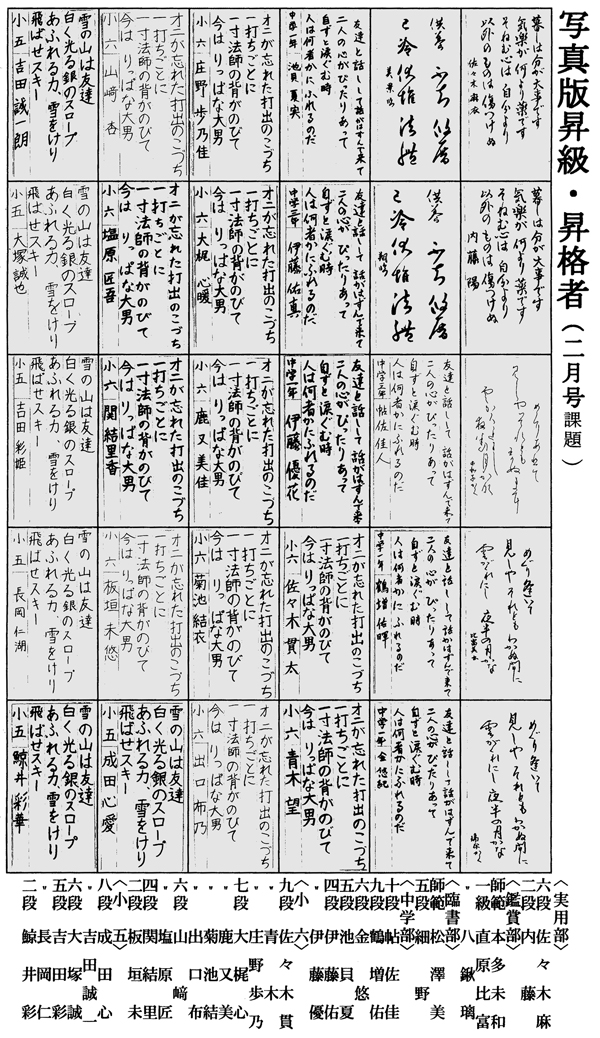 写真版昇級・昇格者（二月号課題）
暮しは分が大事です
気楽が何より薬です
そねむ心は自分より
以外のものは傷つけぬ
佐々木麻衣
暮しは分が大事です
気楽が何より薬です
そねむ心は自分より
以外のものは傷つけぬ
内藤陽
めぐり逢いて
見しやそれともわかぬ間に
雲がくれにし夜半の月かな
めぐり逢いて
見しやそれともわかぬ間に
雲がくれにし夜半の月かな
友達と話しして話がはずんで来て
二人の心がぴったりあって
自ずと涙ぐむ時
人は何者かにふれるのだ
中学三年 帖佐佳人
友達と話しして話がはずんで来て
二人の心がぴったりあって
自ずと涙ぐむ時
人は何者かにふれるのだ
中学一年 鶴増佑暉
友達と話しして話がはずんで来て
二人の心がぴったりあって
自ずと涙ぐむ時
人は何者かにふれるのだ
中学一年 金悠紀
友達と話しして話がはずんで来て
二人の心がぴったりあって
自ずと涙ぐむ時
人は何者かにふれるのだ
中学一年 池貝夏実
友達と話しして話がはずんで来て
二人の心がぴったりあって
自ずと涙ぐむ時
人は何者かにふれるのだ
伊藤佑真
友達と話しして話がはずんで来て
二人の心がぴったりあって
自ずと涙ぐむ時
人は何者かにふれるのだ
中学一年 伊藤優花
オニが忘れた打出のこづち
一打ちごとに
一寸法師の背がのびて
今はりっぱな大男
小六 佐々木貫太
オニが忘れた打出のこづち
一打ちごとに
一寸法師の背がのびて
今はりっぱな大男
小六 青木望
オニが忘れた打出のこづち
一打ちごとに
一寸法師の背がのびて
今はりっぱな大男
小六 庄野歩乃佳
オニが忘れた打出のこづち
一打ちごとに
一寸法師の背がのびて
今はりっぱな大男
小六 大梶心暖
オニが忘れた打出のこづち
一打ちごとに
一寸法師の背がのびて
今はりっぱな大男
小六 鹿又美佳
オニが忘れた打出のこづち
一打ちごとに
一寸法師の背がのびて
今はりっぱな大男
小六 菊池結衣
オニが忘れた打出のこづち
一打ちごとに
一寸法師の背がのびて
今はりっぱな大男
小六 出口布乃
オニが忘れた打出のこづち
一打ちごとに
一寸法師の背がのびて
今はりっぱな大男
小六 山﨑杏
オニが忘れた打出のこづち
一打ちごとに
一寸法師の背がのびて
今はりっぱな大男
小六 塩原匠吾
オニが忘れた打出のこづち
一打ちごとに
一寸法師の背がのびて
今はりっぱな大男
小六 関結里香
オニが忘れた打出のこづち
一打ちごとに
一寸法師の背がのびて
今はりっぱな大男
小六 板垣未悠
雪の山は友達
白く光る銀のスロープ
あふれる力、雪をけり
飛ばせスキー
小五 成田心愛
雪の山は友達
白く光る銀のスロープ
あふれる力、雪をけり
飛ばせスキー
小五 吉田誠一朗
雪の山は友達
白く光る銀のスロープ
あふれる力、雪をけり
飛ばせスキー
小五 大塚誠也
雪の山は友達
白く光る銀のスロープ
あふれる力、雪をけり
飛ばせスキー
小五 吉田彩姫
雪の山は友達
白く光る銀のスロープ
あふれる力、雪をけり
飛ばせスキー
小五 長岡仁湖
雪の山は友達
白く光る銀のスロープ
あふれる力、雪をけり
飛ばせスキー
小五 鯨井彩華
〈実用部〉
六段 佐々木麻
二段 内藤
〈鑑賞部〉
師範 本多未和
一級 直原比富
〃 八鍬璃
〈臨書部〉
師範 松澤美
五段 細野
〈中学部〉
十段 帖佐佳
九段 鶴増佑
六段 金悠
五段 池貝夏
四段 伊藤佑
〃 伊藤優
〈小六〉
九段 佐々木貫
〃 青木
〃 庄野歩乃
七段 大梶心
〃 鹿又美
〃 菊池結
〃 出口布
六段 山﨑
〃 塩原匠
四段 関結里
二段 板垣未
〈小五〉
八段 成田心
〃 吉田誠一
六段 大塚誠
五段 吉田彩
〃 長岡仁
二段 鯨井彩